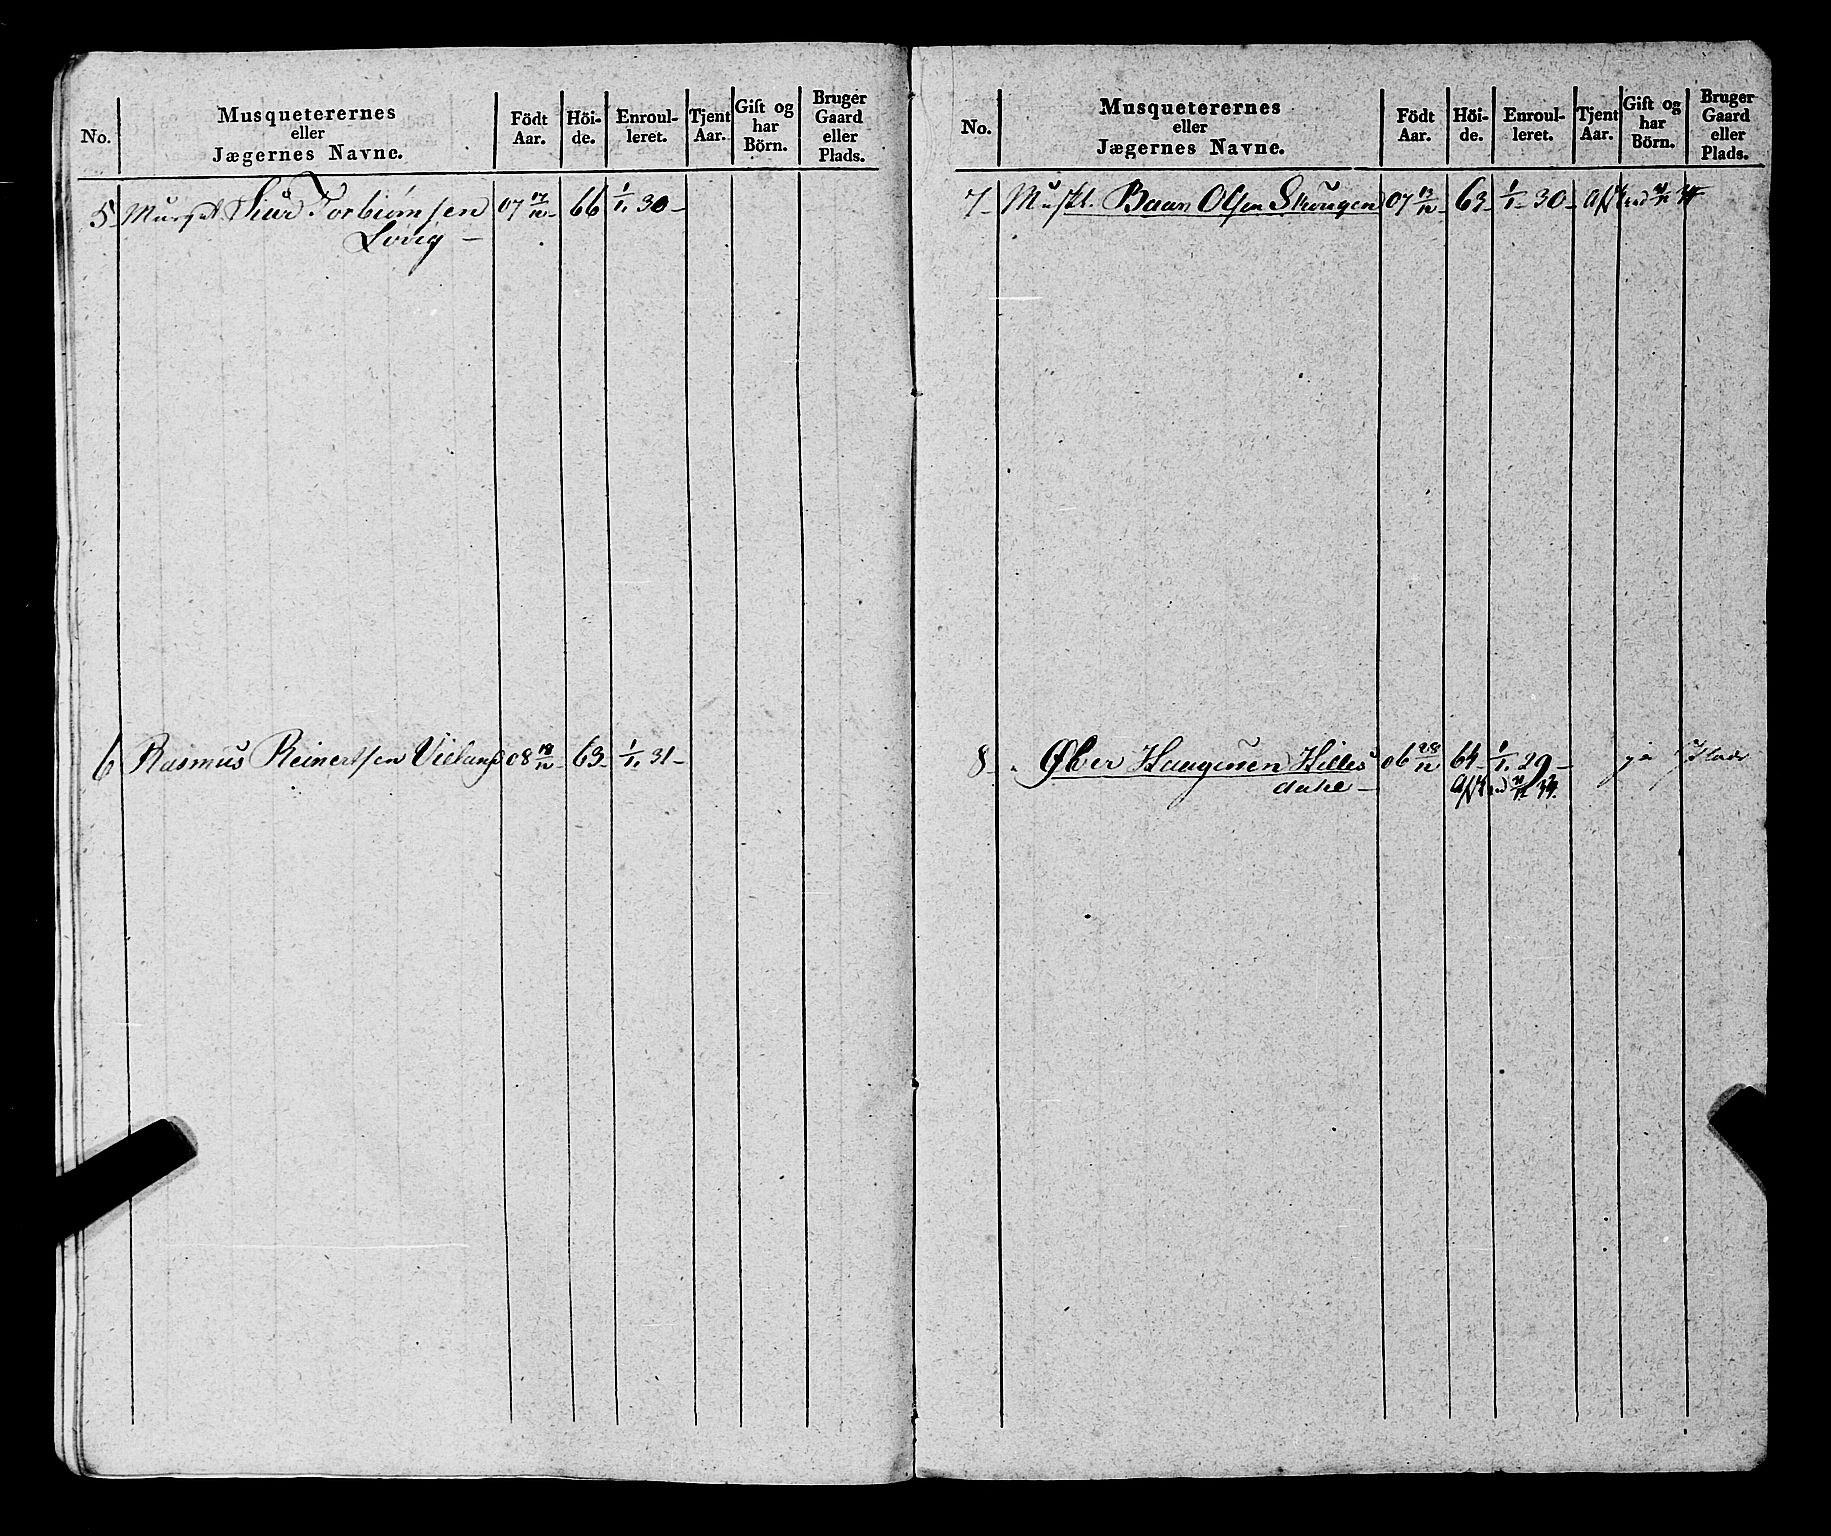 No. Musqueterernes eller Jægernes Navne. Födt Aar. Höide. Enroulleret. Tjent Aar. Gift og har Börn. Bruger Gaard eller Plads.
5 Siur Torbiørnsen 07 17/12 66 1/1 30
6 Rasmus Reinertsen 08 18/12 63 1/1 31
No. Musqueterernes eller Jægernes Navne. Födt Aar. Höide. Enroulleret. Tjent Aar. Gift og har Börn. Bruger Gaard eller Plads.
7 Muskt. Baar Olsen Skougen 07 13/12 63 1/1 30 Afsked
8 Haagensen Hilles 06 28/12 64 1/1 29 ja Plads
dahl Afsked